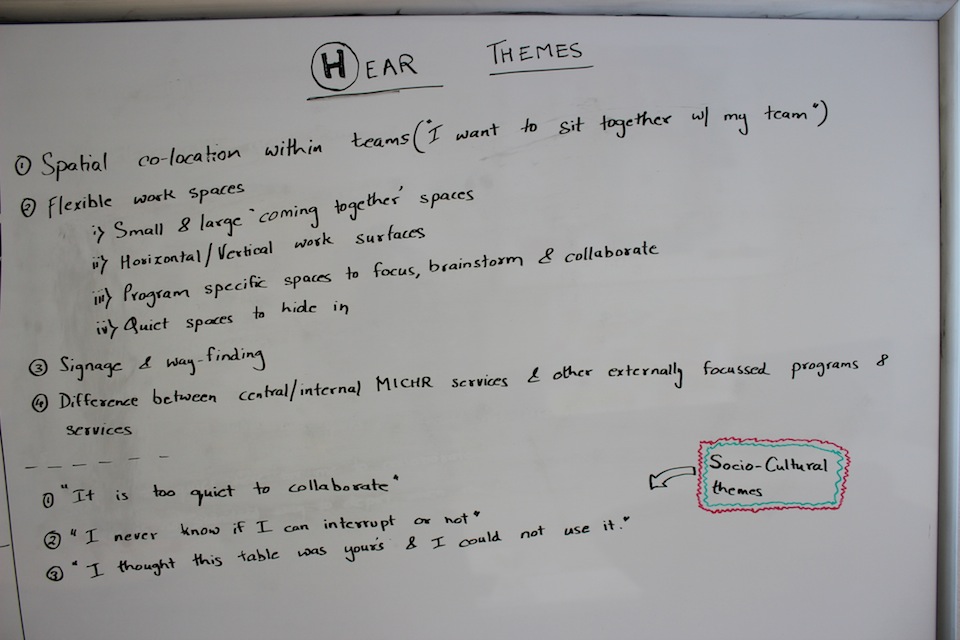 HEAR THEMES
① Spatial co-location within teams ("I want to sit together w/ my team")
② Flexible work spaces
i) Small & large 'coming together' spaces
ii) Horizontal/Vertical work surfaces
iii) Program specific spaces to focus, brainstorm & collaborate
iv) Quiet spaces to hide in
③ Signage & way-finding
④ Difference between central/internal MICHR services & other externally focussed programs &
services
① "It is too quiet to collaborate"
② "I never know if I can interrupt or not"
③ "I thought this table was your's & I could not use it."
Socio-Cultural
themes